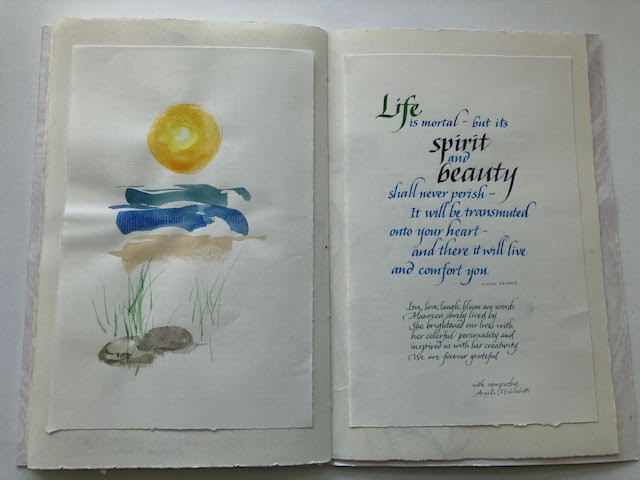 Life
is mortal - but its
spirit
and
beauty
shall never perish -
It will be transmuted
onto your heart -
and there it will live
and comfort you.
Live, love, laugh, bloom are words
Maureen surely lived by.
She brightened our lives with
her colorful personality and
inspired us with her creativity
We are forever grateful
with sympathy,
Angela